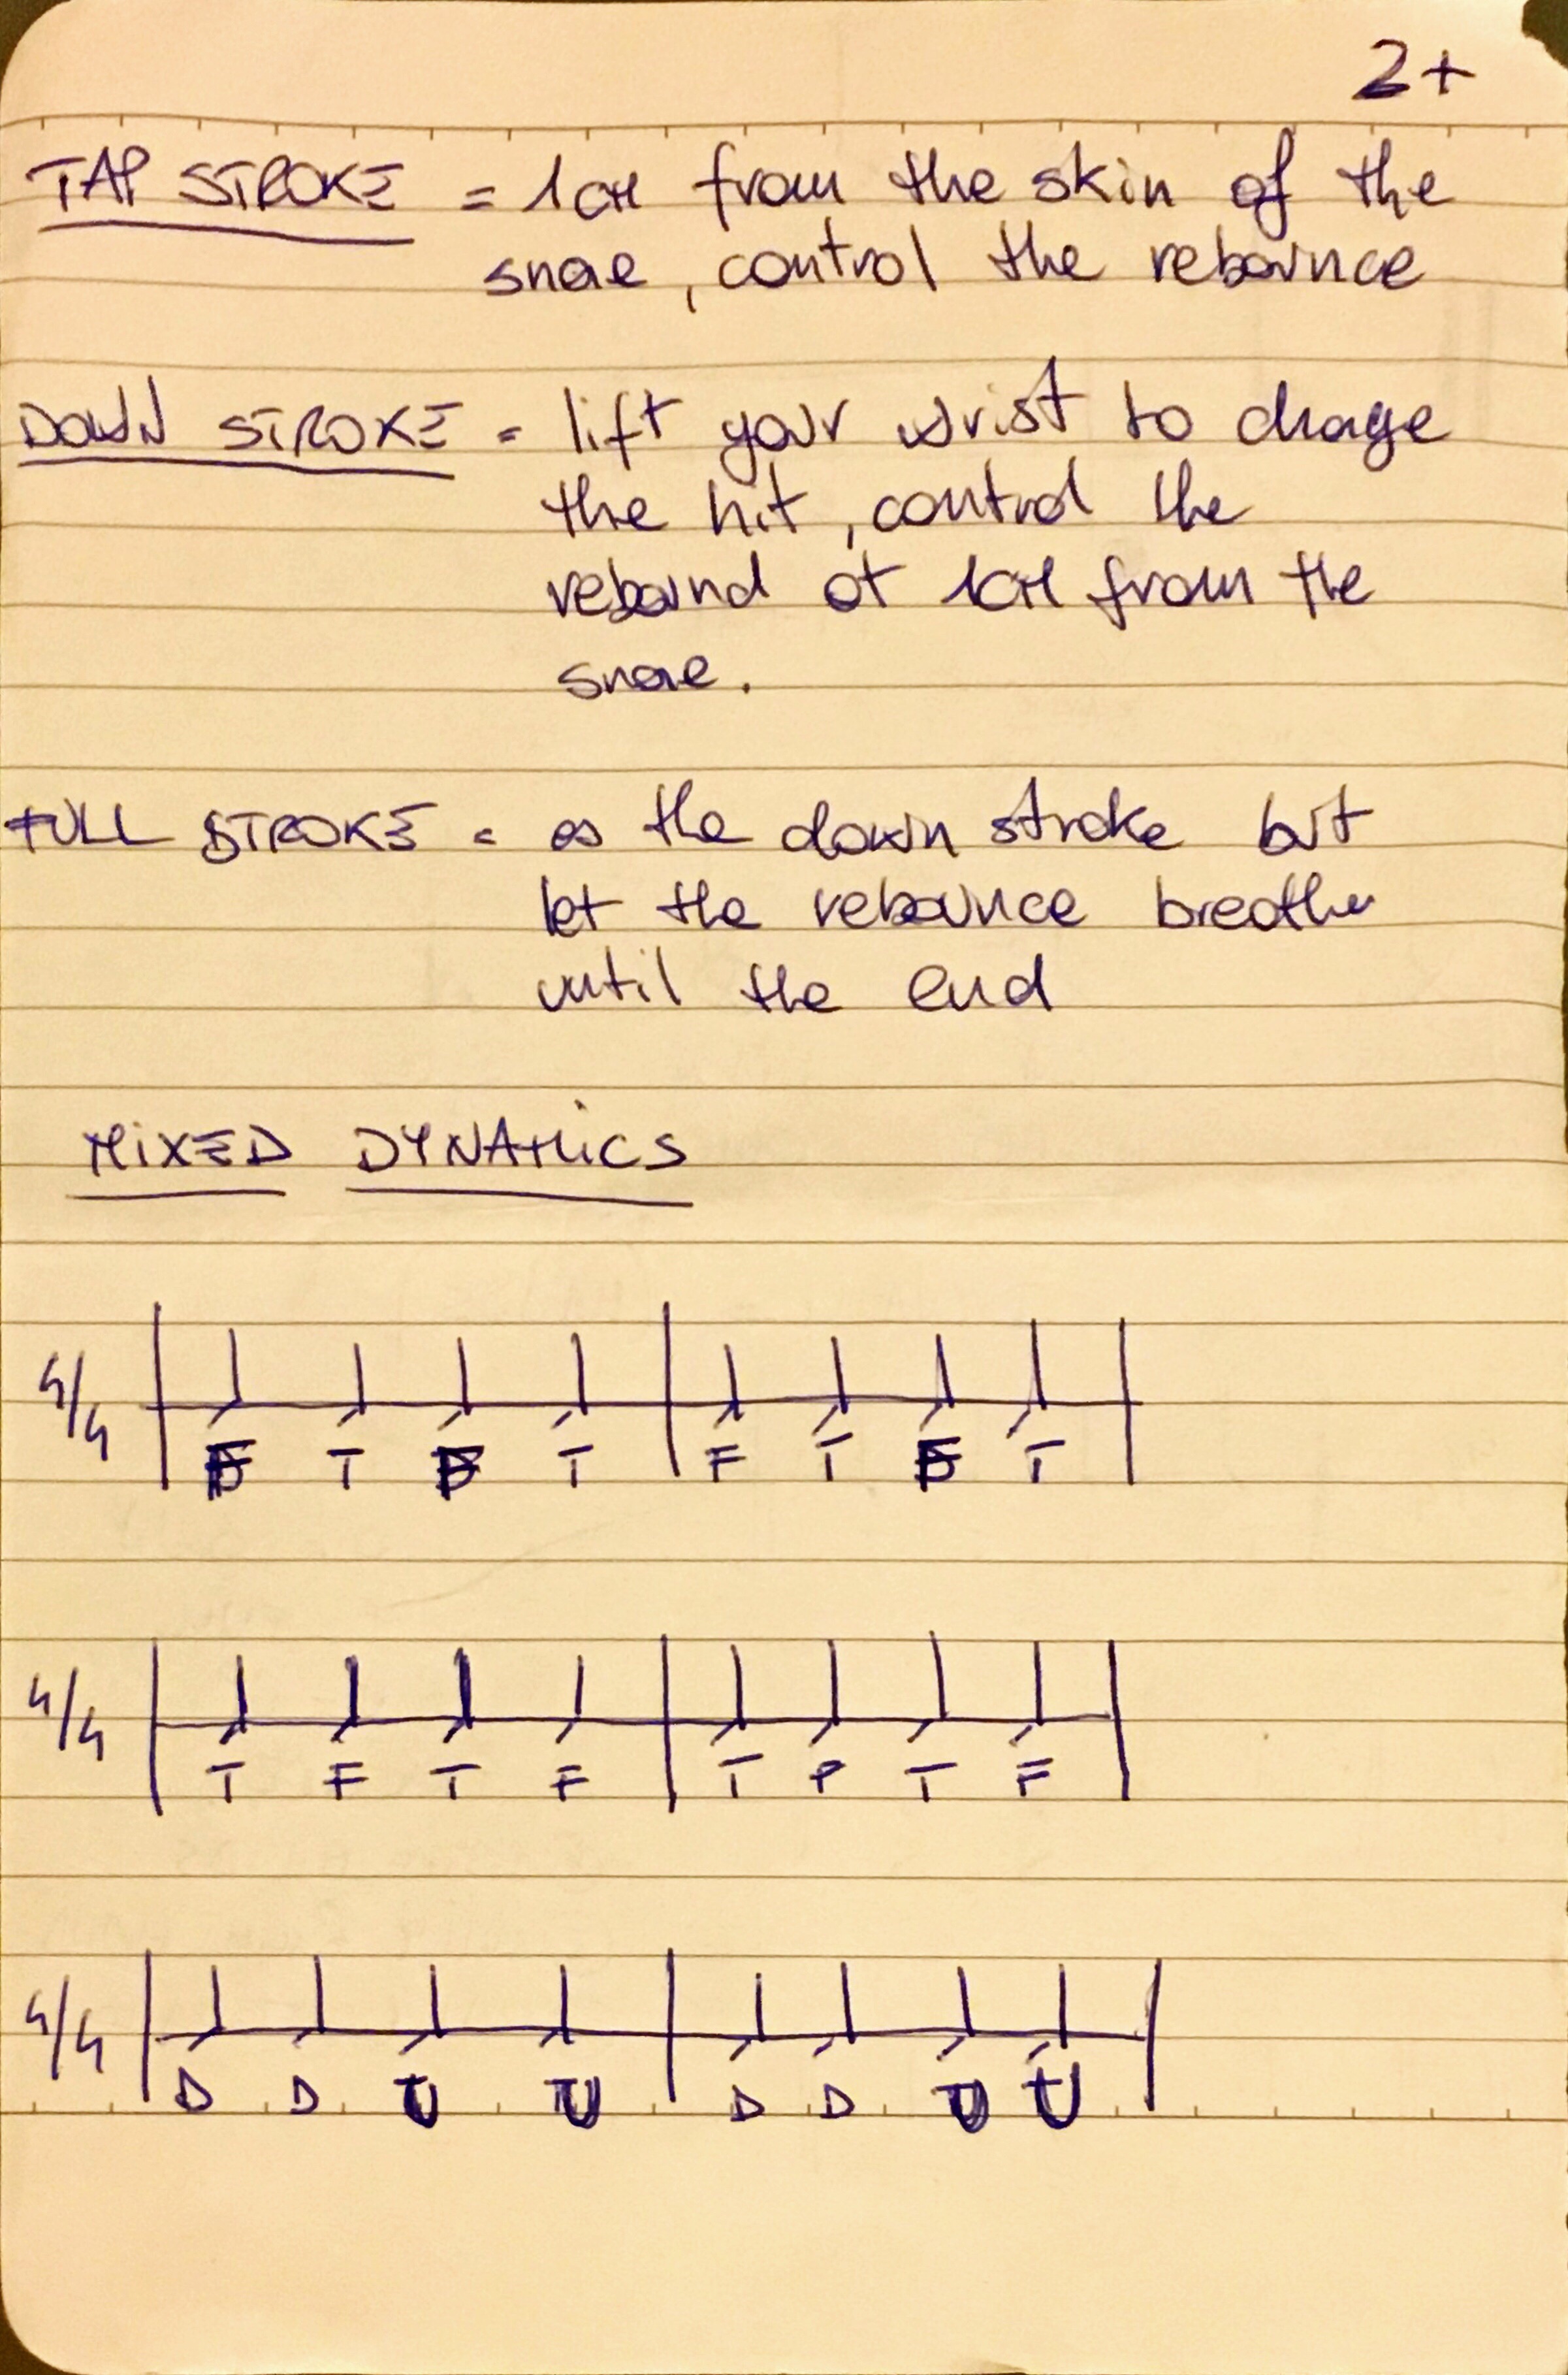 2+
TAP STROKE = 1CM from the skin of the
snae, control the rebounce
DOWN STROKE = lift your wrist to charge
the hit, control the
rebound at 1CM from the
snae.
FULL STROKE = as the down stroke but
let the rebounce breathe
until the end
MIXED DYNAMICS
4/4 F T F T F T F T
4/4 T F T F T F T F
4/4 D D U U D D U U